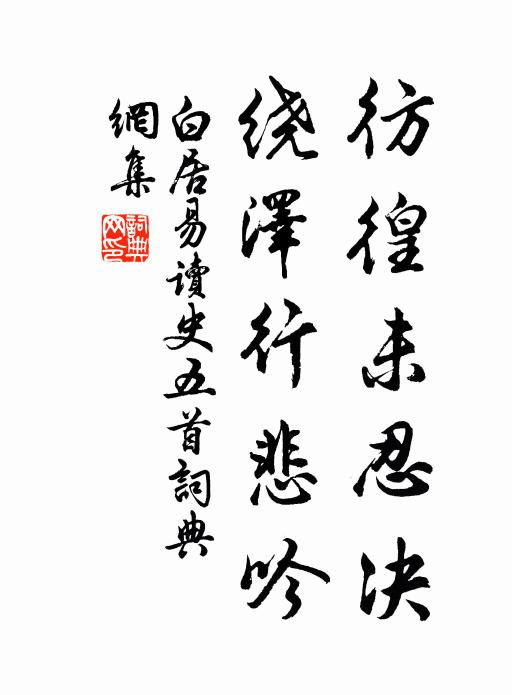 彷徨未忍决
绕澤行悲吟
白居易讀史五首詞典
網集
詞典
网印